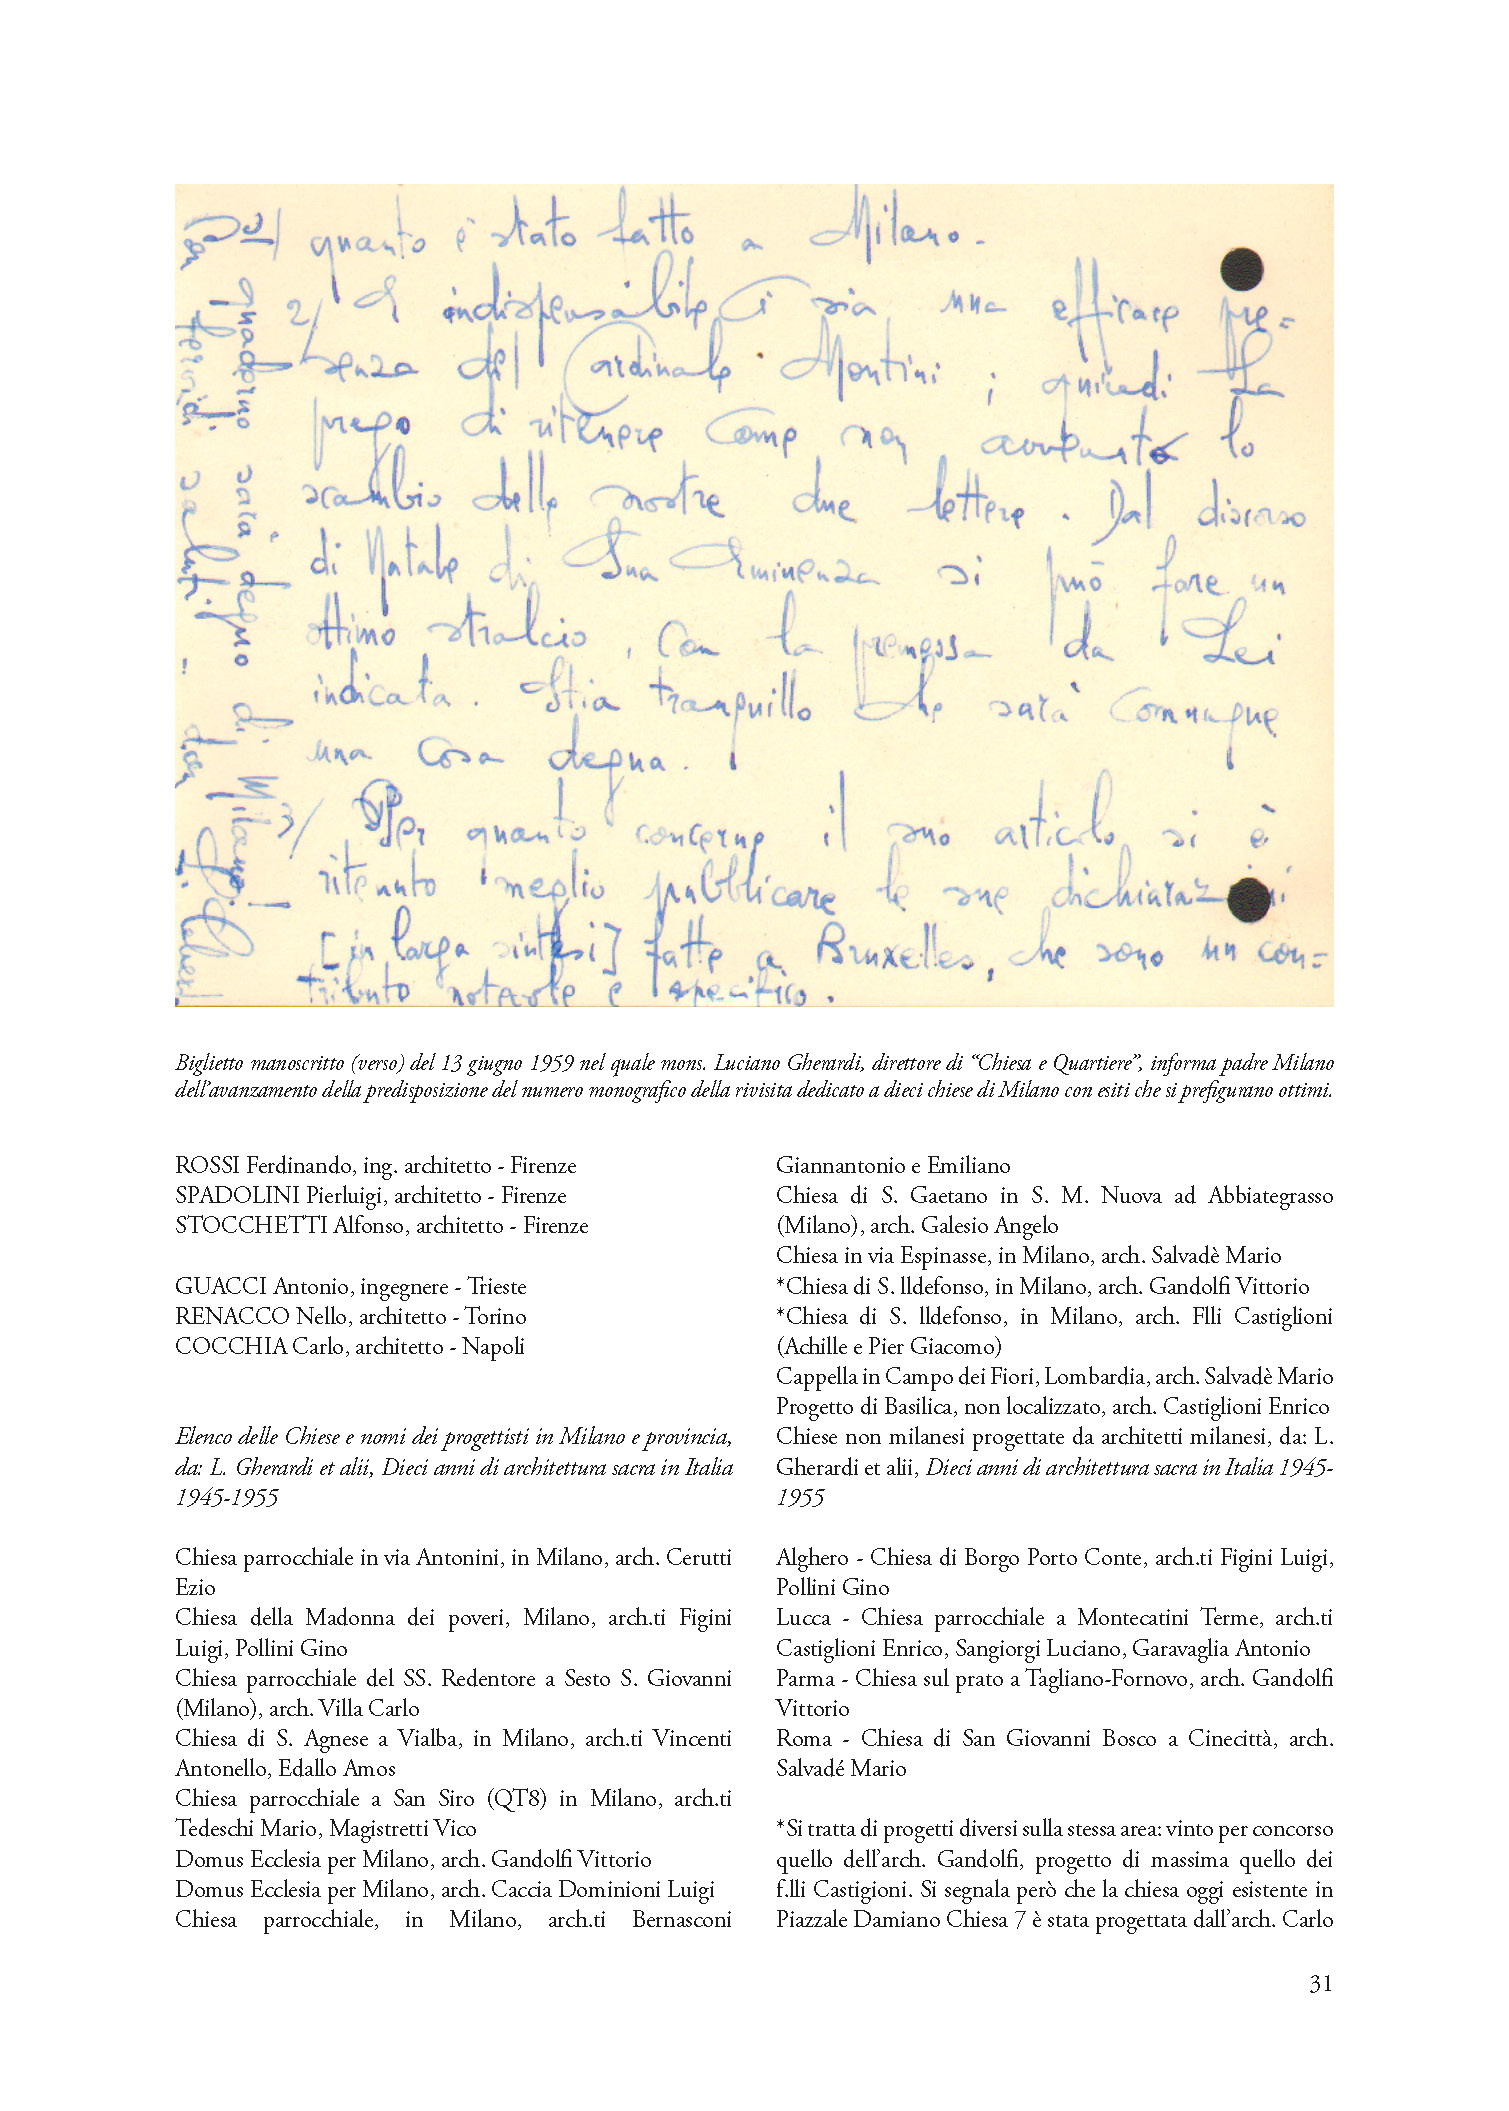 quanto è stato fatto a Milano.
2/ È indispensabile ci sia una efficace pre=
senza del Cardinale Montini ; quindi La
prego di ritenere come non avvenuto lo
scambio delle nostre due lettere. Dal discorso
di Natale di Sua Eminenza si può fare un
ottimo stralcio, con la premessa da Lei
indicata. Stia tranquillo che sarà comunque
una cosa degna.
3/ Per quanto concerne il suo articolo si è
ritenuto meglio pubblicare le sue dichiarazioni
[in larga sintesi] fatte a Bruxelles, che sono un con=
tributo notevole e specifico.
quaderno sarà degno di Milano!
Con fervidi saluti.
Biglietto manoscritto (verso) del 13 giugno 1959 nel quale mons. Luciano Gherardi, direttore di “Chiesa e Quartiere”, informa padre Milano
dell’avanzamento della predisposizione del numero monografico della rivisita dedicato a dieci chiese di Milano con esiti che si prefigurano ottimi.
ROSSI Ferdinando, ing. architetto - Firenze
SPADOLINI Pierluigi, architetto - Firenze
STOCCHETTI Alfonso, architetto - Firenze
GUACCI Antonio, ingegnere - Trieste
RENACCO Nello, architetto - Torino
COCCHIA Carlo, architetto - Napoli
Elenco delle Chiese e nomi dei progettisti in Milano e provincia,
da: L. Gherardi et alii, Dieci anni di architettura sacra in Italia
1945-1955
Chiesa parrocchiale in via Antonini, in Milano, arch. Cerutti
Ezio
Chiesa della Madonna dei poveri, Milano, arch.ti Figini
Luigi, Pollini Gino
Chiesa parrocchiale del SS. Redentore a Sesto S. Giovanni
(Milano), arch. Villa Carlo
Chiesa di S. Agnese a Vialba, in Milano, arch.ti Vincenti
Antonello, Edallo Amos
Chiesa parrocchiale a San Siro (QT8) in Milano, arch.ti
Tedeschi Mario, Magistretti Vico
Domus Ecclesia per Milano, arch. Gandolfi Vittorio
Domus Ecclesia per Milano, arch. Caccia Dominioni Luigi
Chiesa parrocchiale, in Milano, arch.ti Bernasconi
Giannantonio e Emiliano
Chiesa di S. Gaetano in S. M. Nuova ad Abbiategrasso
(Milano), arch. Galesio Angelo
Chiesa in via Espinasse, in Milano, arch. Salvadè Mario
*Chiesa di S. lldefonso, in Milano, arch. Gandolfi Vittorio
*Chiesa di S. lldefonso, in Milano, arch. Flli Castiglioni
(Achille e Pier Giacomo)
Cappella in Campo dei Fiori, Lombardia, arch. Salvadè Mario
Progetto di Basilica, non localizzato, arch. Castiglioni Enrico
Chiese non milanesi progettate da architetti milanesi, da: L.
Gherardi et alii, Dieci anni di architettura sacra in Italia 1945-
1955
Alghero - Chiesa di Borgo Porto Conte, arch.ti Figini Luigi,
Pollini Gino
Lucca - Chiesa parrocchiale a Montecatini Terme, arch.ti
Castiglioni Enrico, Sangiorgi Luciano, Garavaglia Antonio
Parma - Chiesa sul prato a Tagliano-Fornovo, arch. Gandolfi
Vittorio
Roma - Chiesa di San Giovanni Bosco a Cinecittà, arch.
Salvadé Mario
*Si tratta di progetti diversi sulla stessa area: vinto per concorso
quello dell’arch. Gandolfi, progetto di massima quello dei
f.lli Castigioni. Si segnala però che la chiesa oggi esistente in
Piazzale Damiano Chiesa 7 è stata progettata dall’arch. Carlo
31